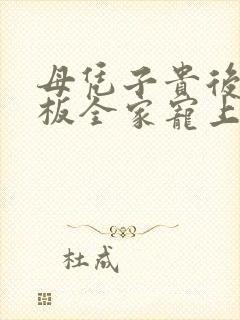 母凭子貴後
板全家寵上
杜成